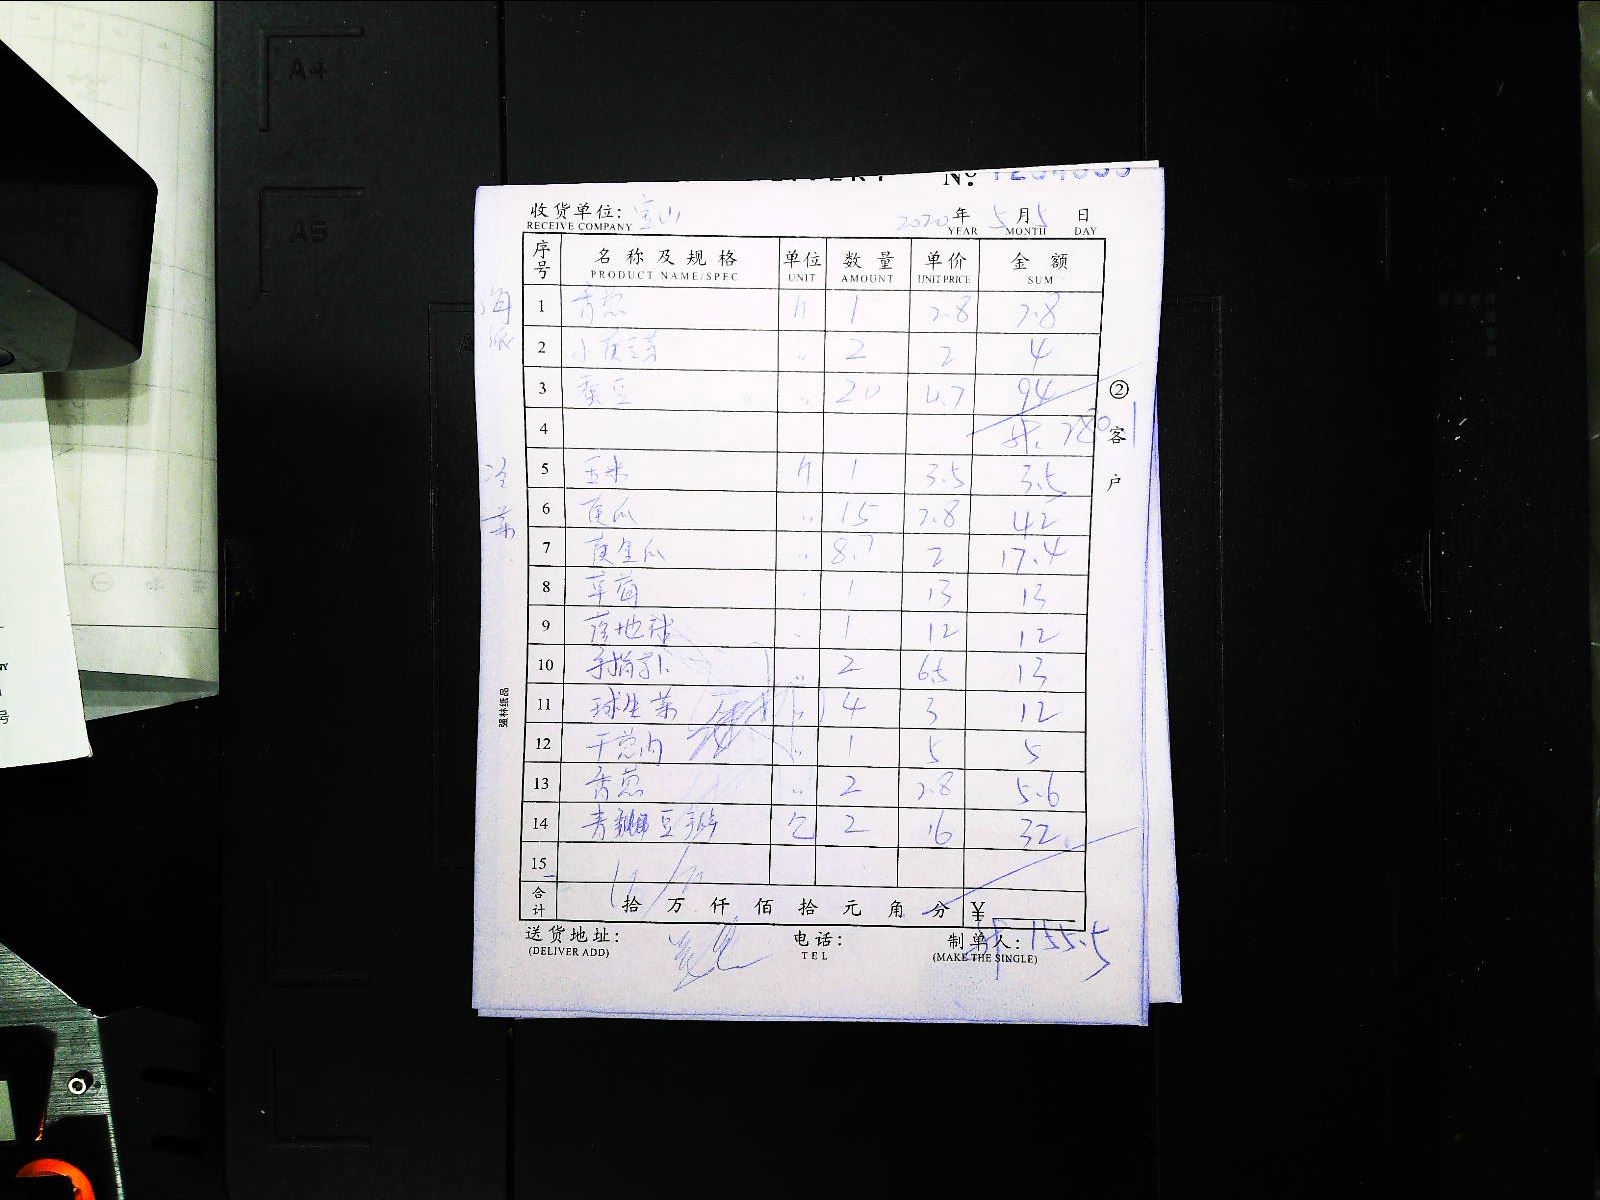 A4
A5
No: 1234333
收货单位: 宝山 2020年 5月5日
RECEIVE COMPANY YEAR MONTH DAY
序号 名称及规格 单位 数量 单价 金额
PRODUCT NAME/SPEC UNIT AMOUNT UNIT PRICE SUM
海派
1 香葱 斤 1 2.8 2.8
2 小黄豆芽 〃 2 2 4
3 蚕豆 〃 20 4.7 94
4
②客户
冷菜
5 玉米 斤 1 3.5 3.5
6 黄瓜 〃 15 2.8 42
7 黄金瓜 〃 8.7 2 17.4
8 草莓 〃 1 13 13
9 1 12 12
10 2 6.5 13
11 球生菜 〃 4 3 12
12 干葱肉 〃 1 5 5
13 香葱 〃 2 2.8 5.6
14 豆瓣 2 16 32
15
合计 拾万仟佰拾元角分 ¥
155.5
送货地址: 电话: 制单人:
(DELIVER ADD) TEL (MAKE THE SINGLE)
强林纸品